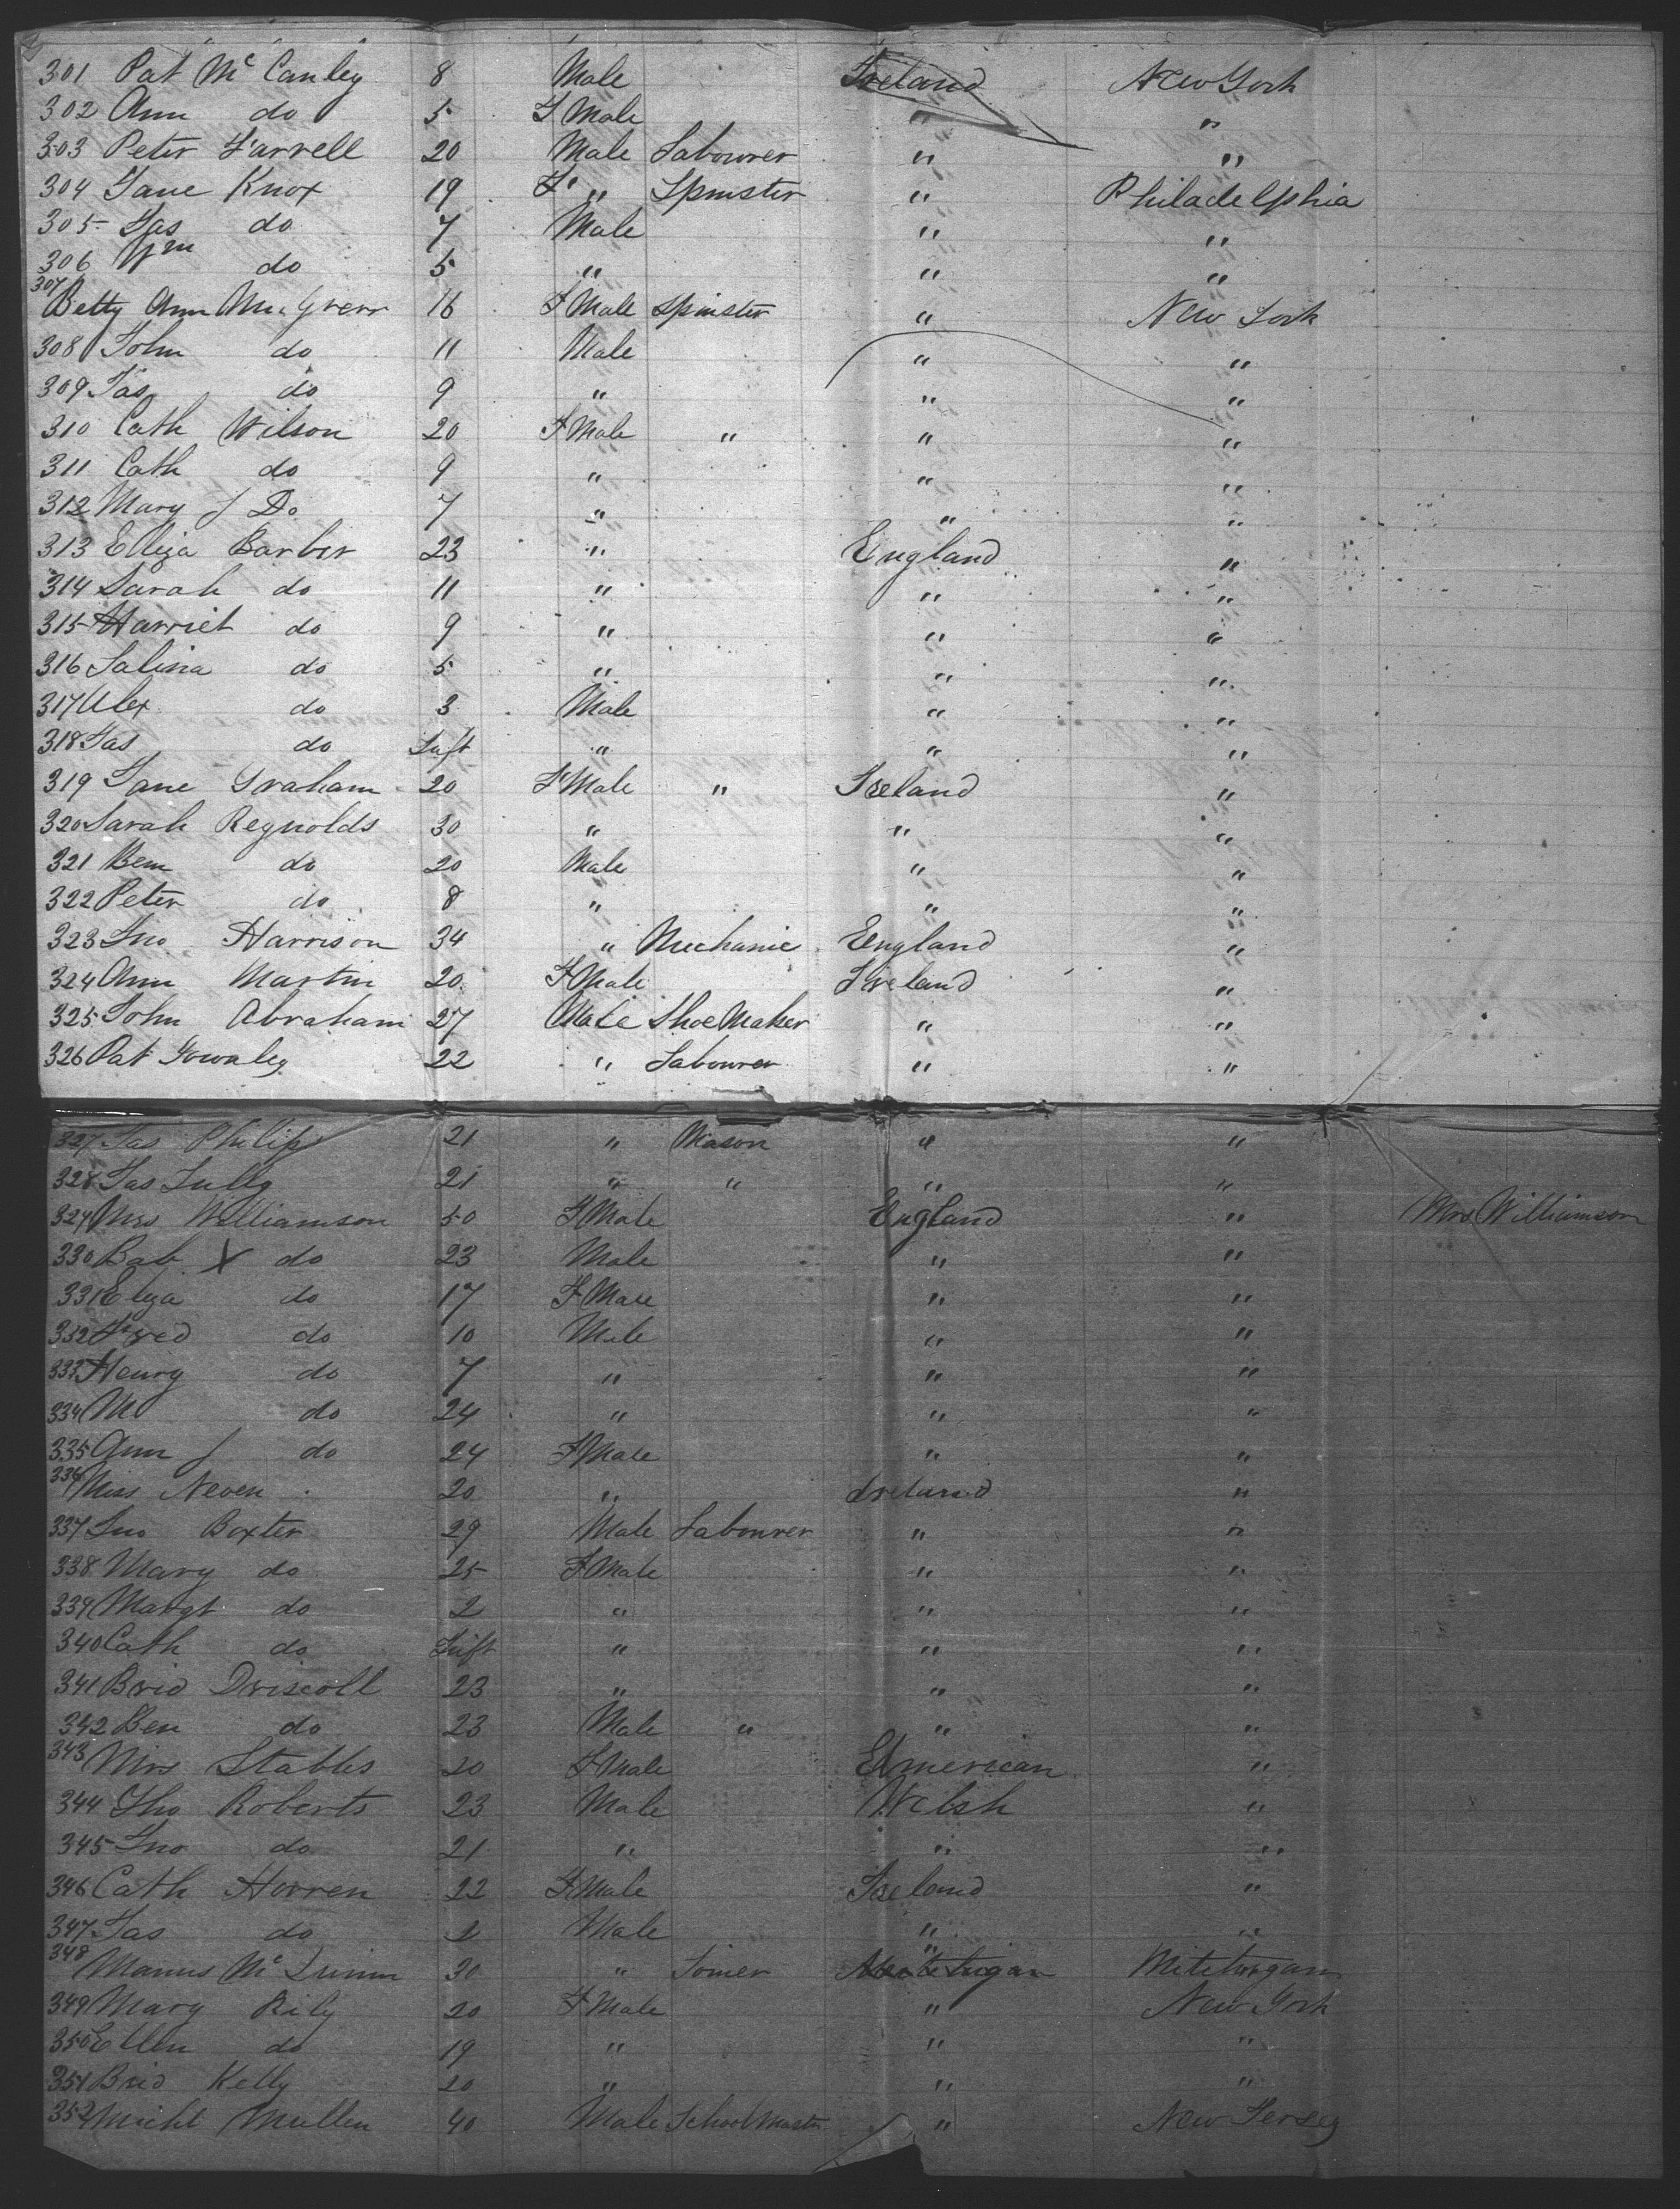 301 Pat Mc Canley 8 Male Ireland New York
302 Ann do 5 F Male " "
303 Peter Farrell 20 Male Labourer " "
304 Jane Knox 19 F " Spinster " Philadelphia
305 Jas do 7 Male " "
306 Wm do 5 " " "
307 Betty Ann 16 F Male Spinster " New York
308 John do 11 Male " "
309 Jas do 9 " " "
310 Cath Wilson 20 F Male " " "
311 Cath do 9 " " "
312 Mary J Do 7 " " "
313 Eliza Barber 23 " England "
314 Sarah do 11 " " "
315 Harriet do 9 " " "
316 Salina do 5 " " "
317 Alex do 3 Male " "
318 Jas do Inft " " "
319 Jane Graham 20 F Male " Ireland "
320 Sarah Reynolds 30 " " "
321 Ben do 20 Male " "
322 Peter do 8 " " "
323 Jno Harrison 34 " Mechanic England "
324 Ann Martin 20 F Male Ireland "
325 John Abraham 27 Male Shoe Maker " "
326 Pat Gownley 22 " Labourer " "
327 Jas Philip 21 " Mason " "
328 Jas Tully 21 " " " "
329 Mrs Williamson 50 F Male England " Mrs Williamson
330 Bab X do 23 Male " "
331 Eliza do 17 F Male " "
332 Fred do 10 Male " "
333 Henry do 7 " " "
334 M do 24 " " "
335 Ann J do 24 F Male " "
336 Miss Neven 20 " Ireland "
337 Jno Boxter 29 Male Labourer " "
338 Mary do 25 F Male " "
339 Margt do 2 " " "
340 Cath do Inft " " "
341 Brid Driscoll 23 " " "
342 Ben do 23 Male " " "
343 Mrs Stables 20 F Male American "
344 Tho Roberts 23 Male Welsh "
345 Jno do 21 " " "
346 Cath Horren 22 F Male Ireland "
347 Jas do 2 Male " "
348 Manus Mc 30 " Joiner " Mitchigan
349 Mary Rily 20 F Male " New York
350 Ellen do 19 " " "
351 Brid Kelly 20 " " "
352 Michl Mullen 40 Male School Master " New Jersey